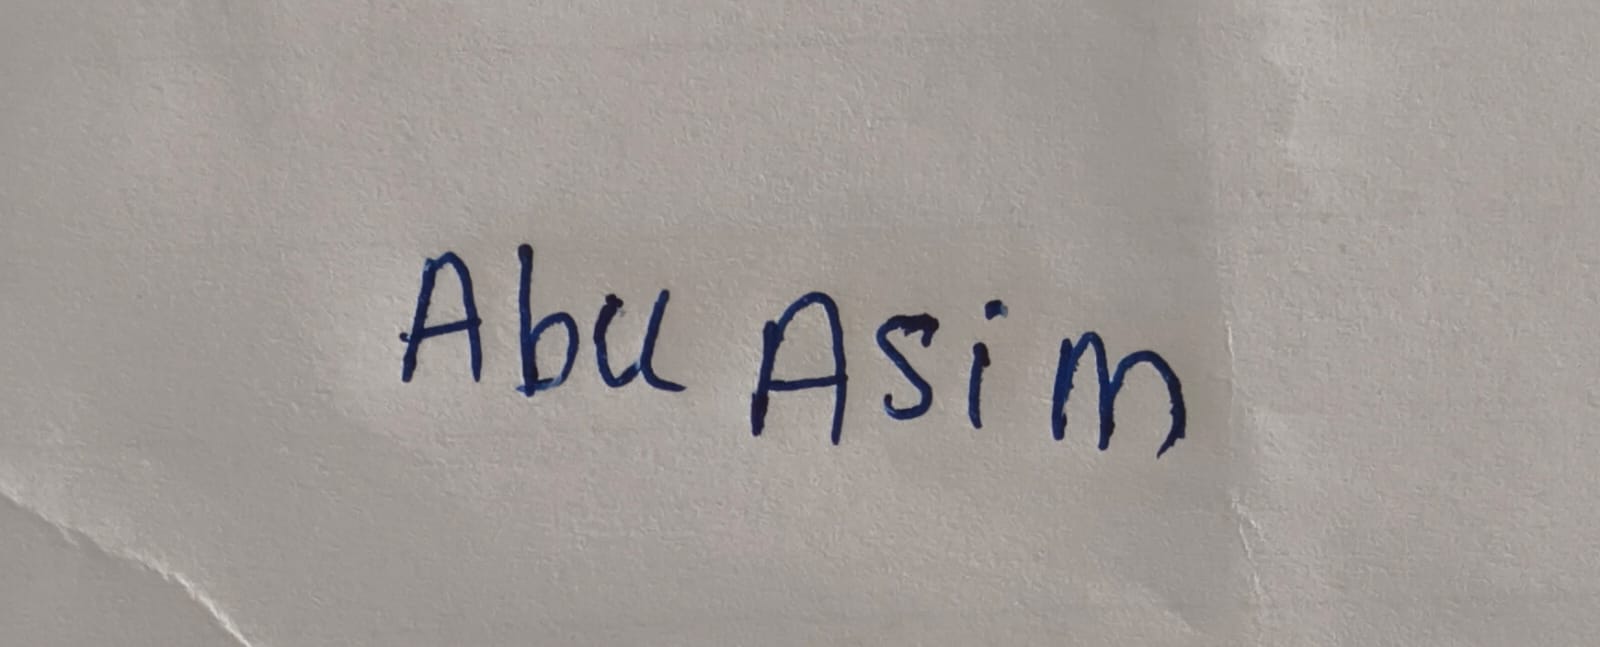 Abu Asim